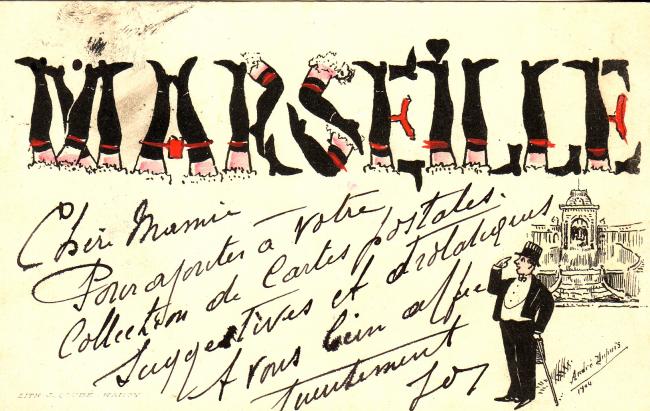 MARSEILLE
Chère Mamie
Pour ajouter à votre
Collection de Cartes postales.
Suggestives et drolatiques
A vous bien affec
tueusement
André Dupuis
1904
NANCY